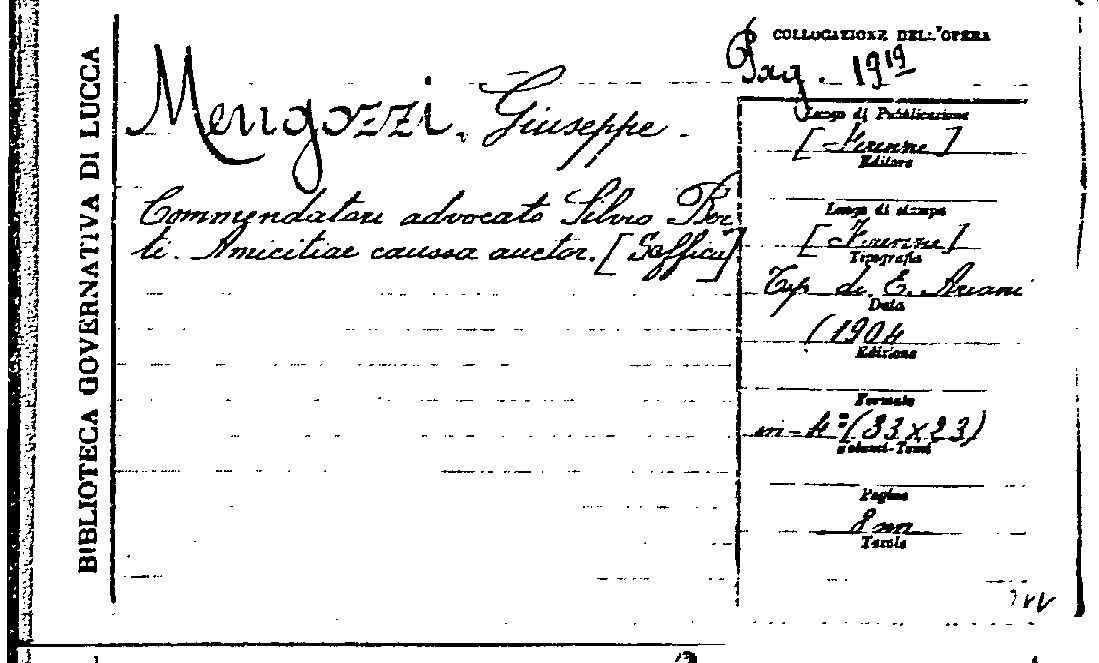 BIBLIOTECA GOVERNATIVA DI LUCCA
COLLOCAZIONE DELL'OPERA
Pag. 1919
Mengozzi, Giuseppe.
Commendatori advocato Silvio Ber
ti. Amicitiae caussa auctor. [Saffica]
Luogo di Pubblicazione
[Firenze]
Editore
Luogo di stampa
[Firenze]
Tipografia
Tip. di E. Ariani
Data
(1904
Edizione
Formato
in-4° (33x23)
Volumi-Tomi
Pagine
8 nn
Tavole